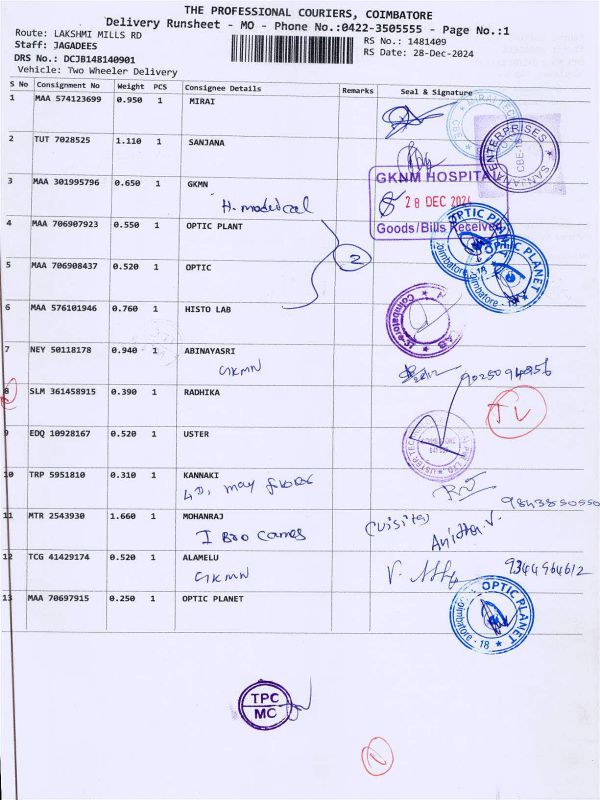 THE PROFESSIONAL COURIERS, COIMBATORE
Delivery Runsheet - MO - Phone No.:0422-3505555 - Page No.:1
Route: LAKSHMI MILLS RD
Staff: JAGADEES
DRS No.: DCJB148140901
Vehicle: Two Wheeler Delivery
RS No.: 1481409
RS Date: 28-Dec-2024
S No Consignment No Weight PCS Consignee Details Remarks Seal & Signature
1 MAA 574123699 0.950 1 MIRAI
2 TUT 7028525 1.110 PCS SANJANA
SANJANA ENTERPRISES
3 MAA 301995796 0.650 1 GKMN
GKNM HOSPITAL
28 DEC 2024
Goods/Bills Received
4 MAA 706907923 0.550 1 OPTIC PLANT
2
OPTIC PLANET
Coimbatore - 18
5 MAA 706908437 0.520 1 OPTIC
OPTIC PLANET
Coimbatore - 18
6 MAA 576101946 0.760 1 HISTO LAB
7 NEY 50118178 0.940 1 ABINAYASRI
GKMN
8 SLM 361458915 0.390 1 RADHIKA
9 EDQ 10928167 0.520 1 USTER
10 TRP 5951810 0.310 1 KANNAKI
11 MTR 2543930 1.660 1 MOHANRAJ
12 TCG 41429174 0.520 1 ALAMELU
GKMN
9344964612
13 MAA 70697915 0.250 1 OPTIC PLANET
OPTIC PLANET
Coimbatore - 18
TPC
MO